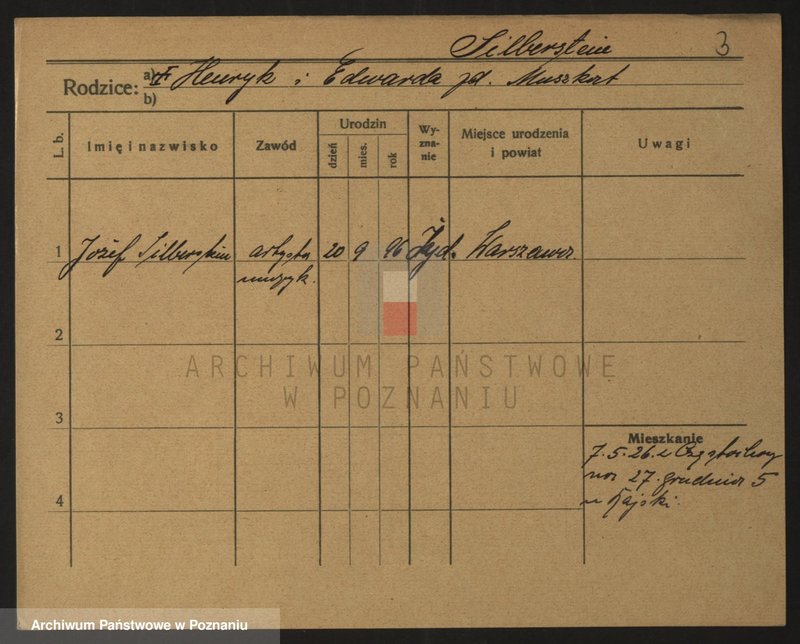 Silberstein 3
Rodzice: a) Henryk i Edwarda żd. Muszkat
b)
L. b. Imię i nazwisko Zawód Urodzin dzień mies. rok Wy-zna-nie Miejsce urodzenia i powiat Uwagi
1 Józef Silberstein artysta 20 9 96 Żyd. Warszawa.
muzyk.
2
ARCHIWUM PAŃSTWOWE
W POZNANIU
3
Mieszkanie
7.5.26. z Częstochowy
na 27. grudnia 5
4
Archiwum Państwowe w Poznaniu